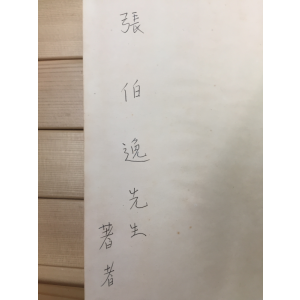 張伯逸先生
著者